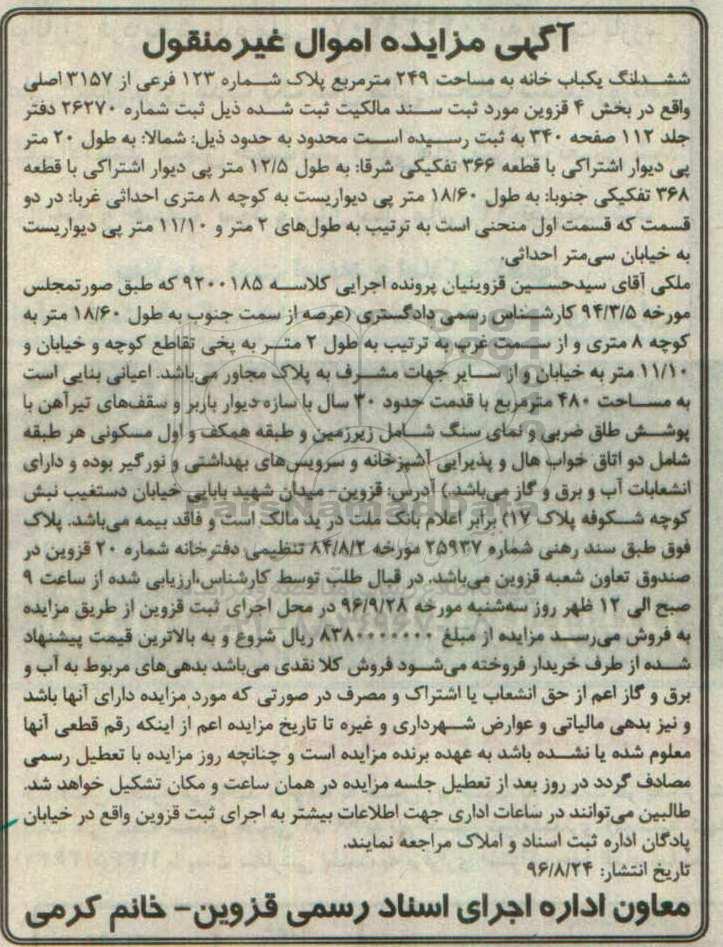 آگهی مزایده اموال غیرمنقول
ششدانگ یکباب خانه به مساحت ۲۴۹ مترمربع پلاک شماره ۱۲۳ فرعی از ۳۱۵۷ اصلی
واقع در بخش ۴ قزوین مورد ثبت سند مالکیت ثبت شده ذیل ثبت شماره ۲۶۲۷۰ دفتر
جلد ۱۱۲ صفحه ۳۴۰ به ثبت رسیده است محدود به حدود ذیل: شمالا: به طول ۲۰ متر
پی دیوار اشتراکی با قطعه ۳۶۶ تفکیکی شرقا: به طول ۱۲/۵ متر پی دیوار اشتراکی با قطعه
۳۶۸ تفکیکی جنوبا: به طول ۱۸/۶۰ متر پی دیواریست به کوچه ۸ متری احداثی غربا: در دو
قسمت که قسمت اول منحنی است به ترتیب به طول‌های ۲ متر و ۱۱/۱۰ متر پی دیواریست
به خیابان سی‌متر احداثی.
ملکی آقای سیدحسین قزوینیان پرونده اجرایی کلاسه ۹۲۰۰۱۸۵ که طبق صورتمجلس
مورخه ۹۴/۳/۵ کارشناس رسمی دادگستری (عرصه از سمت جنوب به طول ۱۸/۶۰ متر به
کوچه ۸ متری و از سمت غرب به ترتیب به طول ۲ متر به پخی تقاطع کوچه و خیابان و
۱۱/۱۰ متر به خیابان و از سایر جهات مشرف به پلاک مجاور می‌باشد. اعیانی بنایی است
به مساحت ۴۸۰ مترمربع با قدمت حدود ۳۰ سال با سازه دیوار باربر و سقف‌های تیرآهن با
پوشش طاق ضربی و نمای سنگ شامل زیرزمین و طبقه همکف و اول مسکونی هر طبقه
شامل دو اتاق خواب هال و پذیرایی آشپزخانه و سرویس‌های بهداشتی و نورگیر بوده و دارای
انشعابات آب و برق و گاز می‌باشد.) آدرس: قزوین- میدان شهید بابایی خیابان دستغیب نبش
کوچه شکوفه پلاک ۱۷) برابر اعلام بانک ملت در ید مالک است و فاقد بیمه می‌باشد. پلاک
فوق طبق سند رهنی شماره ۲۵۹۳۷ مورخه ۸۴/۸/۲ تنظیمی دفترخانه شماره ۲۰ قزوین در
صندوق تعاون شعبه قزوین می‌باشد. در قبال طلب توسط کارشناس،ارزیابی شده از ساعت ۹
صبح الی ۱۲ ظهر روز سه‌شنبه مورخه ۹۶/۹/۲۸ در محل اجرای ثبت قزوین از طریق مزایده
به فروش می‌رسد مزایده از مبلغ ۸۳۸۰۰۰۰۰۰۰ ریال شروع و به بالاترین قیمت پیشنهاد
شده از طرف خریدار فروخته می‌شود فروش کلا نقدی می‌باشد بدهی‌های مربوط به آب و
برق و گاز اعم از حق انشعاب یا اشتراک و مصرف در صورتی که مورد مزایده دارای آنها باشد
و نیز بدهی مالیاتی و عوارض شهرداری و غیره تا تاریخ مزایده اعم از اینکه رقم قطعی آنها
معلوم شده یا نشده باشد به عهده برنده مزایده است و چنانچه روز مزایده با تعطیل رسمی
مصادف گردد در روز بعد از تعطیل جلسه مزایده در همان ساعت و مکان تشکیل خواهد شد.
طالبین می‌توانند در ساعات اداری جهت اطلاعات بیشتر به اجرای ثبت قزوین واقع در خیابان
پادگان اداره ثبت اسناد و املاک مراجعه نمایند.
تاریخ انتشار: ۹۶/۸/۲۴
معاون اداره اجرای اسناد رسمی قزوین- خانم کرمی
ParsNamadData